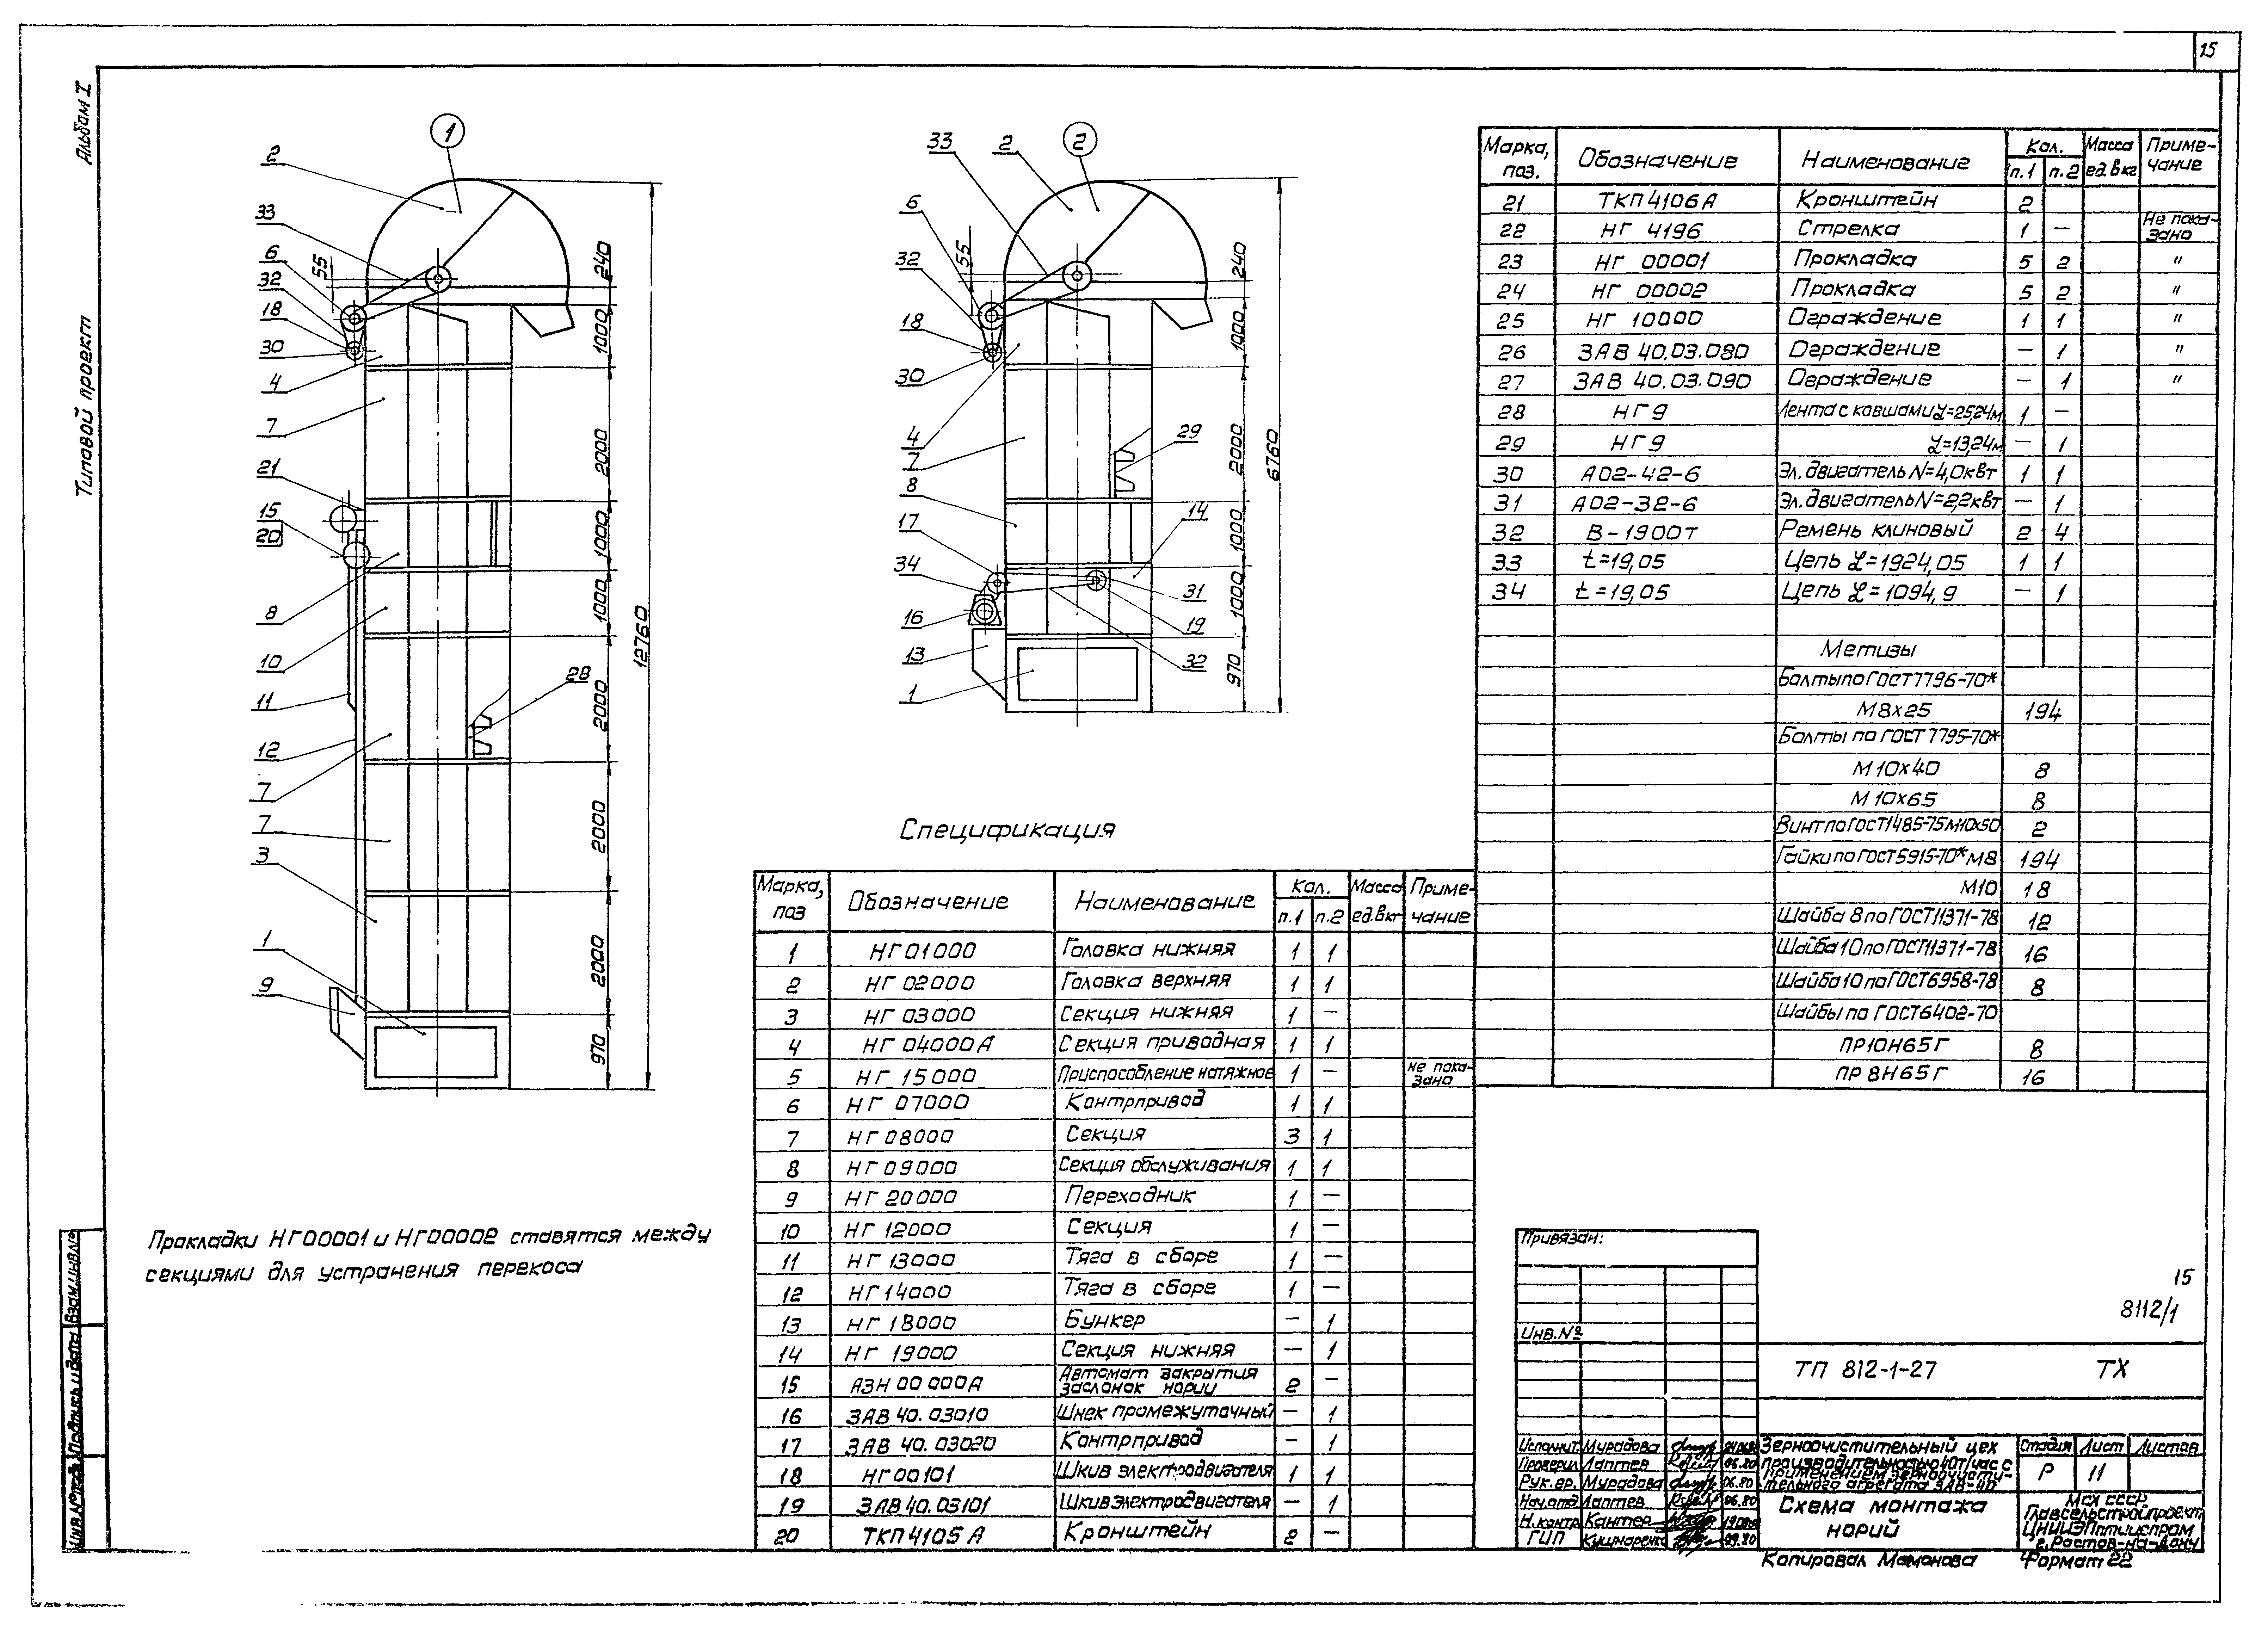 15
Альбом I
Типовой проект
1
2
33
6
32
18
30
4
7
21
15
20
8
10
11
12
7
7
3
1
9
28
55
240
1000
2000
1000
1000
2000
2000
2000
970
12760
2
33
2
6
32
18
30
4
7
8
17
34
16
13
1
29
14
31
19
32
55
240
1000
2000
1000
1000
970
6760
Прокладки НГ00001 и НГ00002 ставятся между
секциями для устранения перекоса
Спецификация
Марка, поз | Обозначение | Наименование | Кол. п.1 п.2 | Масса ед.в кг | Примечание
1 НГ 01000 Головка нижняя 1 1
2 НГ 02000 Головка верхняя 1 1
3 НГ 03000 Секция нижняя 1 —
4 НГ 04000А Секция приводная 1 1
5 НГ 15000 Приспособление натяжное 1 — не показано
6 НГ 07000 Контрпривод 1 1
7 НГ 08000 Секция 3 1
8 НГ 09000 Секция обслуживания 1 1
9 НГ 20000 Переходник 1 —
10 НГ 12000 Секция 1 —
11 НГ 13000 Тяга в сборе 1 —
12 НГ 14000 Тяга в сборе 1 —
13 НГ 18000 Бункер — 1
14 НГ 19000 Секция нижняя — 1
15 АЗН 00 000А Автомат закрытия заслонок нории 2 —
16 ЗАВ 40.03010 Шнек промежуточный — 1
17 ЗАВ 40.03020 Контрпривод — 1
18 НГ 00101 Шкив электродвигателя 1 1
19 ЗАВ 40.05101 Шкив электродвигателя — 1
20 ТКП 4105 А Кронштейн 2 —
Марка, поз. | Обозначение | Наименование | Кол. п.1 п.2 | Масса ед.в кг | Примечание
21 ТКП 4106А Кронштейн 2
22 НГ 4196 Стрелка 1 — Не показано
23 НГ 00001 Прокладка 5 2 "
24 НГ 00002 Прокладка 5 2 "
25 НГ 10000 Ограждение 1 1 "
26 ЗАВ 40.03.080 Ограждение — 1 "
27 ЗАВ 40.03.090 Ограждение — 1 "
28 НГ9 Лента с ковшами L=25,24м 1 —
29 НГ9 L=13,24м — 1
30 А02-42-6 Эл. двигатель N=4,0квт 1 1
31 А02-32-6 Эл. двигатель N=2,2квт — 1
32 В-1900Т Ремень клиновый 2 4
33 t=19,05 Цепь L=1924,05 1 1
34 t=19,05 Цепь L=1094,9 — 1
Метизы
Болты по ГОСТ 7796-70*
М8х25 194
Болты по ГОСТ 7795-70*
М10х40 8
М10х65 8
Винт по ГОСТ 1485-75 М10х50 2
Гайки по ГОСТ 5915-70* М8 194
М10 18
Шайба 8 по ГОСТ 11371-78 12
Шайба 10 по ГОСТ 11371-78 16
Шайба 10 по ГОСТ 6958-78 8
Шайбы по ГОСТ 6402-70
ПР10Н65Г 8
ПР 8Н65Г 16
Привязан:
Инв.№
15
8112/1
ТП 812-1-27 ТХ
Исполнит. Мурадова
Проверил Лаптев 06.80
Рук. гр. Мурадова 06.80
Нач.отд Лаптев 06.80
Н.контр Кантер
ГИП Кушнаренко 09.80
Зерноочистительный цех
производительностью 40т/час с
применением зерноочисти-
тельного агрегата ЗАВ-40
Стадия Лист Листов
Р 11
Схема монтажа
норий
МСХ СССР
Главсельстройпроект
ЦНИИЭПптицепром
г. Ростов-на-Дону
Копировал Мамонова Формат 22
Взам.инв.№
Подпись и дата
Инв.№ подл.